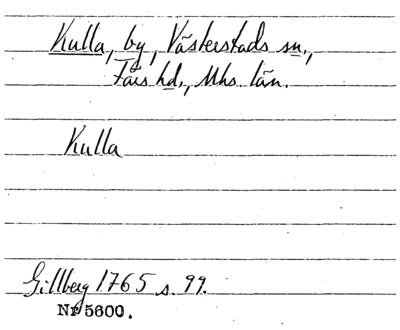 Kulla, by, Västerstads sn.,
Färs hd., Mhs län.
Kulla
Gillberg 1765 s. 99.
Nr 5600.